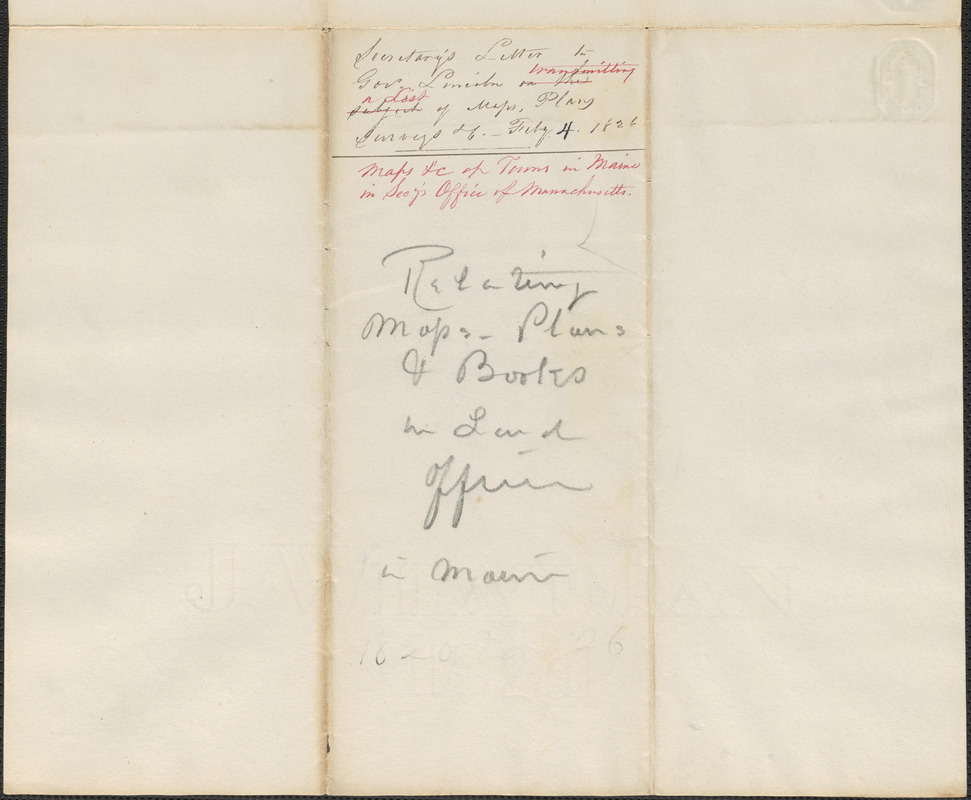 Secretary's Letter to
Gov. Lincoln on this transmitting
subject a List of Maps, Plans
Surveys &c. - Feby 4. 1826
Maps &c of Towns in Maine
in Secy's Office of Massachusetts.
Relating
Maps - Plans
& Books
in Land
Office
in Maine
1820 26